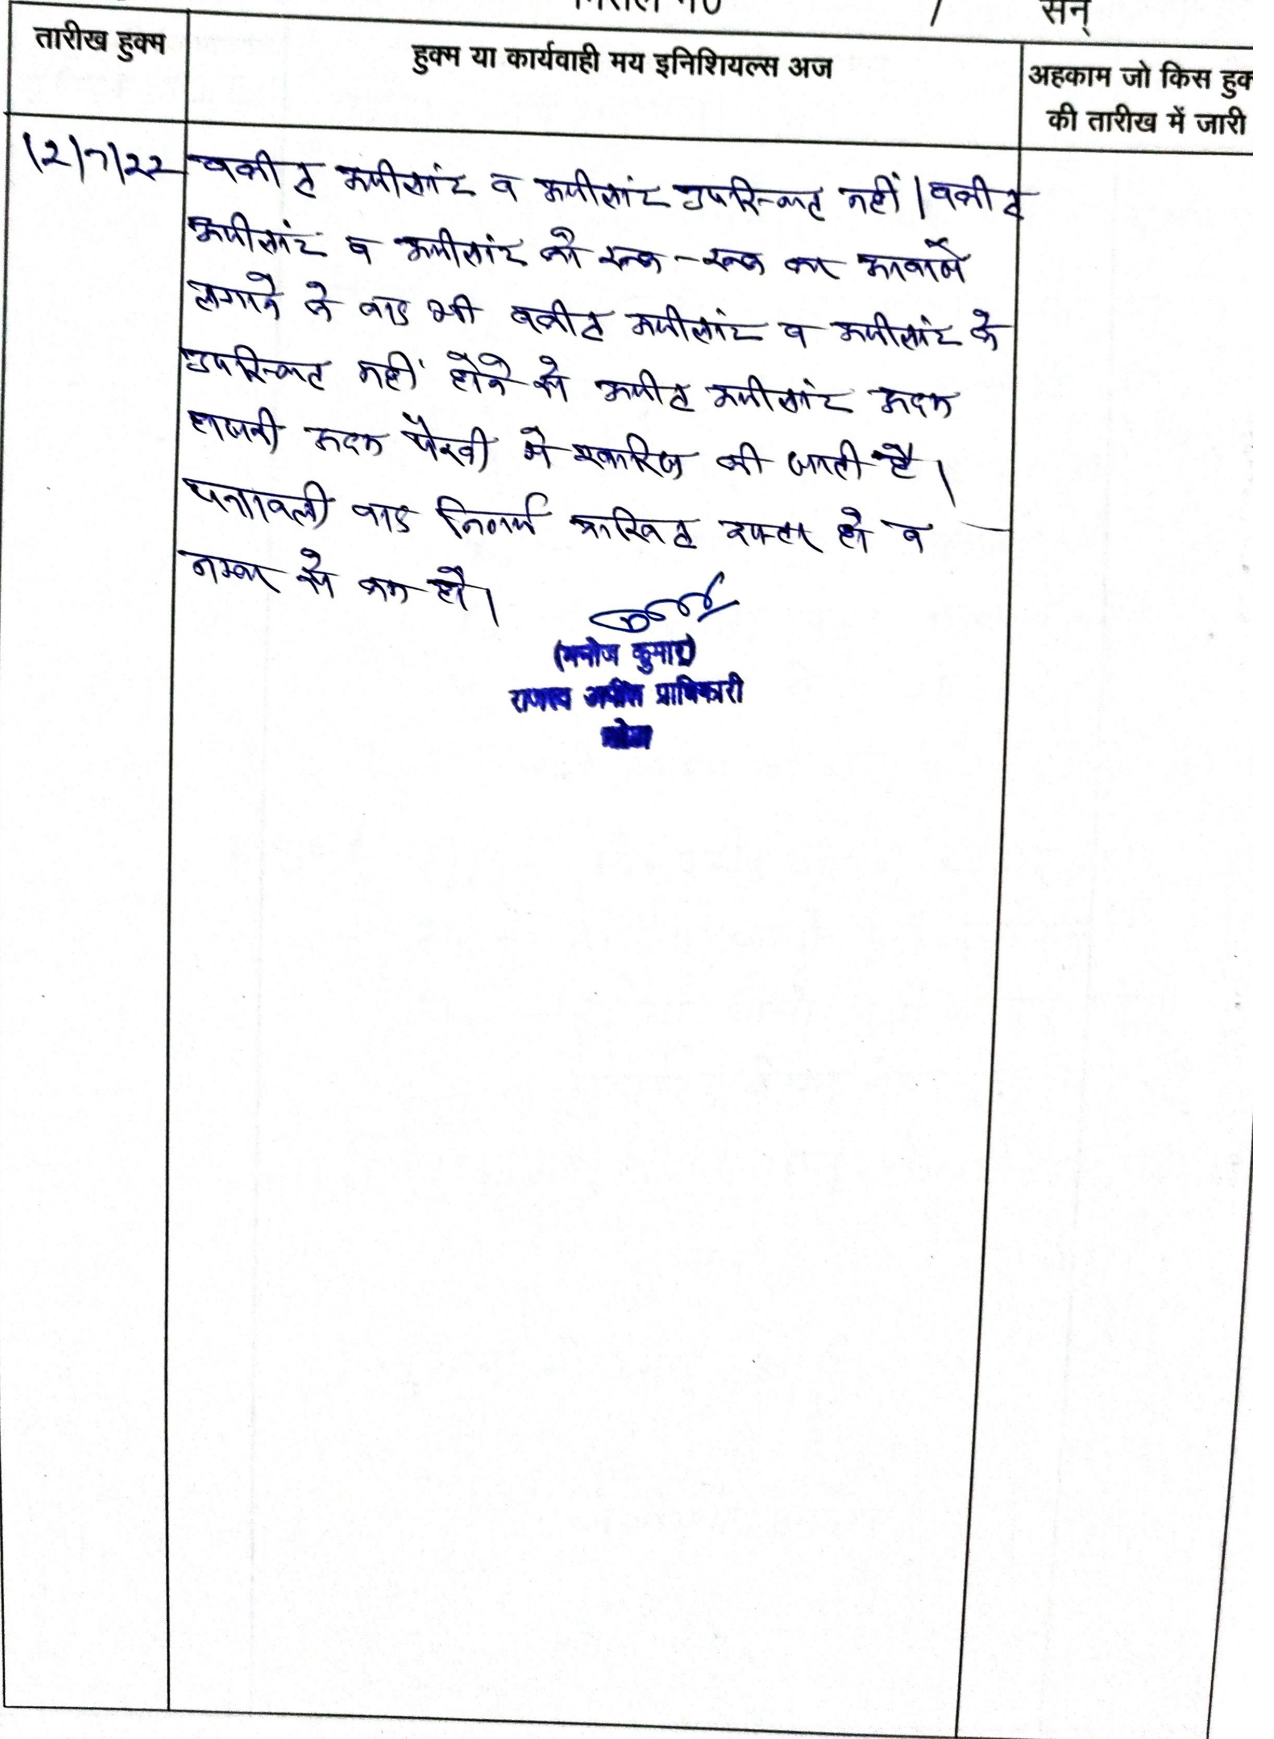 सन्
तारीख हुक्म
हुक्म या कार्यवाही मय इनिशियल्स अज
अहकाम जो किस हुक
की तारीख में जारी
12/7/22
वकील अपीलांट व अपीलांट उपस्थित नहीं। वकील
अपीलांट व अपीलांट को रूक-रूक कर आवाजें
लगाने के बाद भी वकील अपीलांट व अपीलांट के
उपस्थित नहीं होने से अपील अपीलांट अदम
हाजरी अदम पैरवी में खारिज की जाती है।
पत्रावली बाद निर्णय दाखिल दफ्तर हो व
नम्बर से कम हो।
(मनोज कुमार)
राजस्व अपील प्राधिकारी